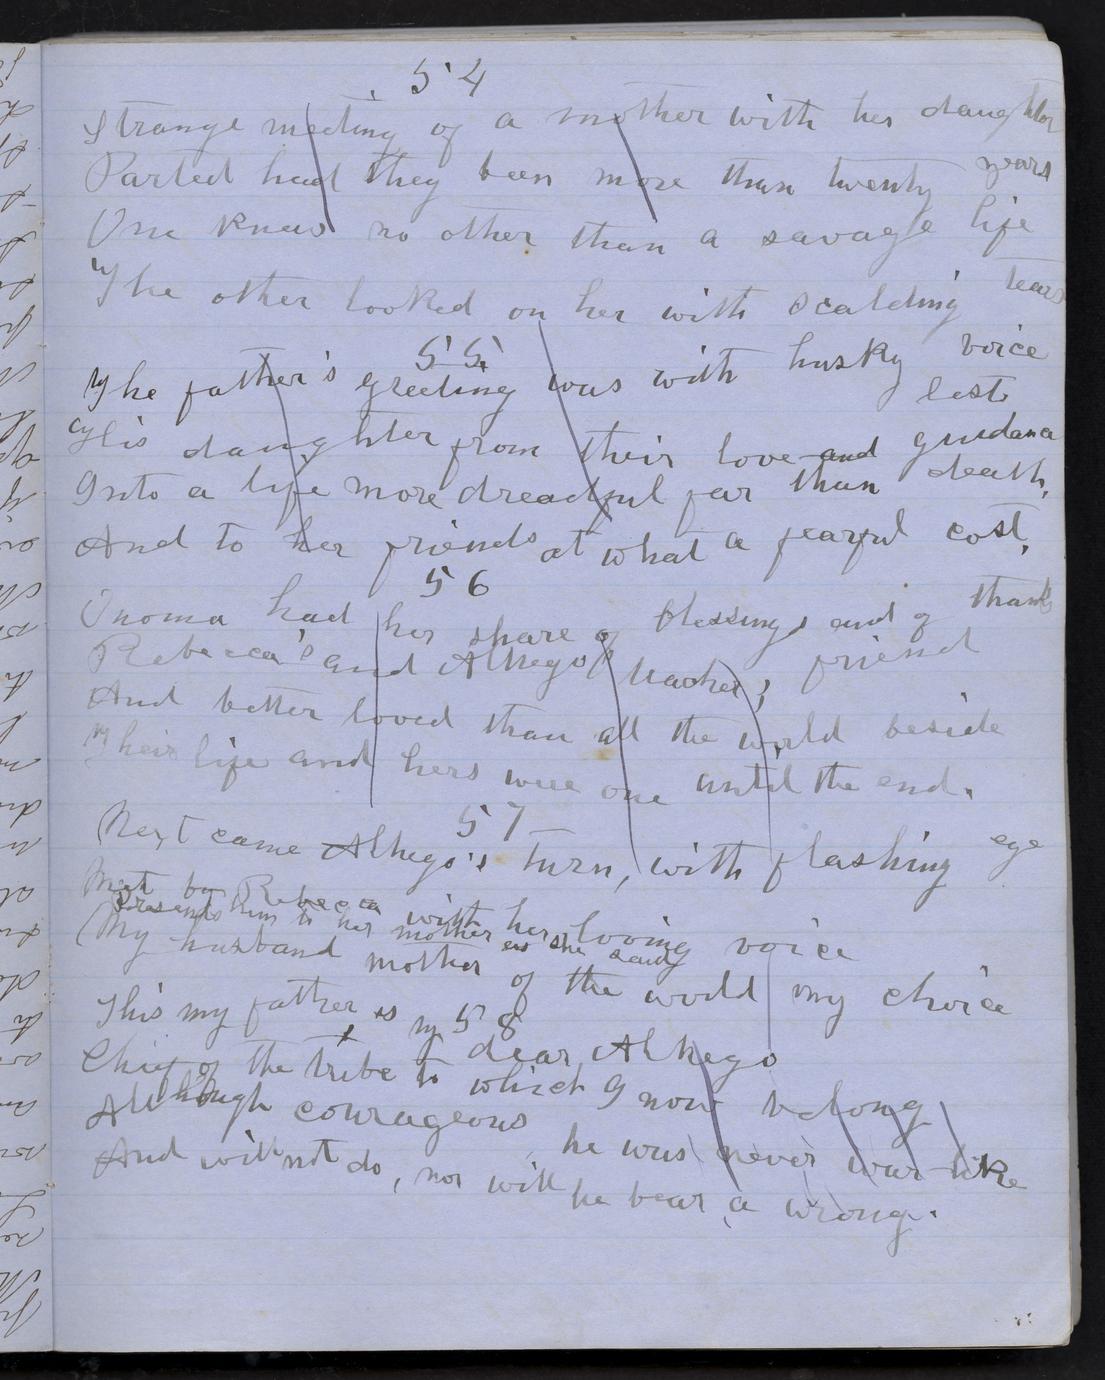 54
Strange meeting of a mother with her daughter
Parted had they been more than twenty years
One knew no other than a savage life
The other looked on her with scalding tears
55
The father's greeting was with husky voice
lost
His daughter from their love and guidance
Into a life more dreadful far than death,
And to her friends at what a fearful cost,
56
Onoma had her share of blessings and of thanks
Rebecca's and Alkego's teacher, friend
And better loved than all the world beside
Their life and hers were one until the end.
57
Next came Alkego's turn, with flashing eye
Met by Rebecca with her loving voice
Presents him to her mother as she said
My husband mother of the world my choice
58
This my father is my dear Alkego
Chief of the tribe to which I now belong
Although courageous he was never war-like
And will not do, nor will he bear a wrong.